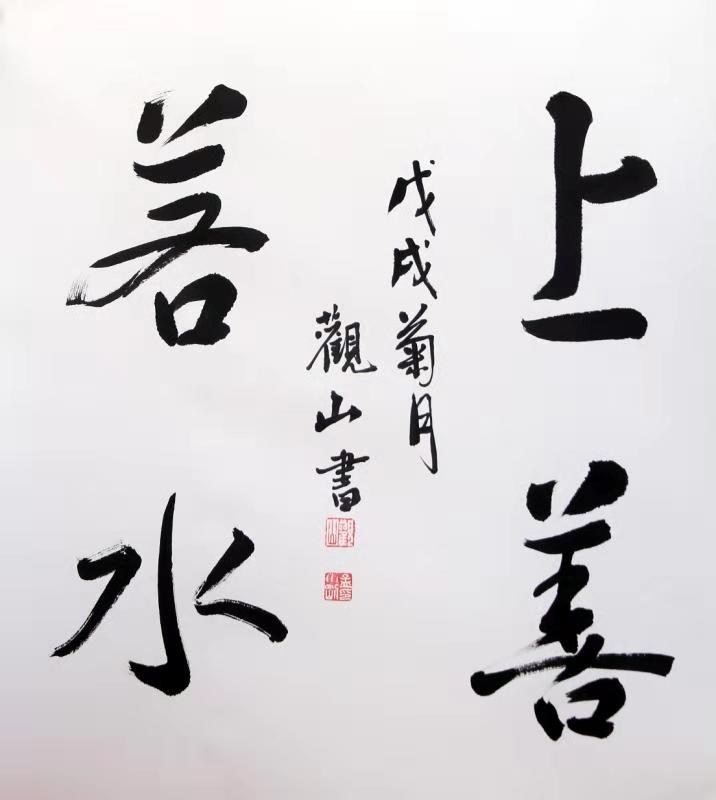 上善
若水
戊戌菊月
觀山書